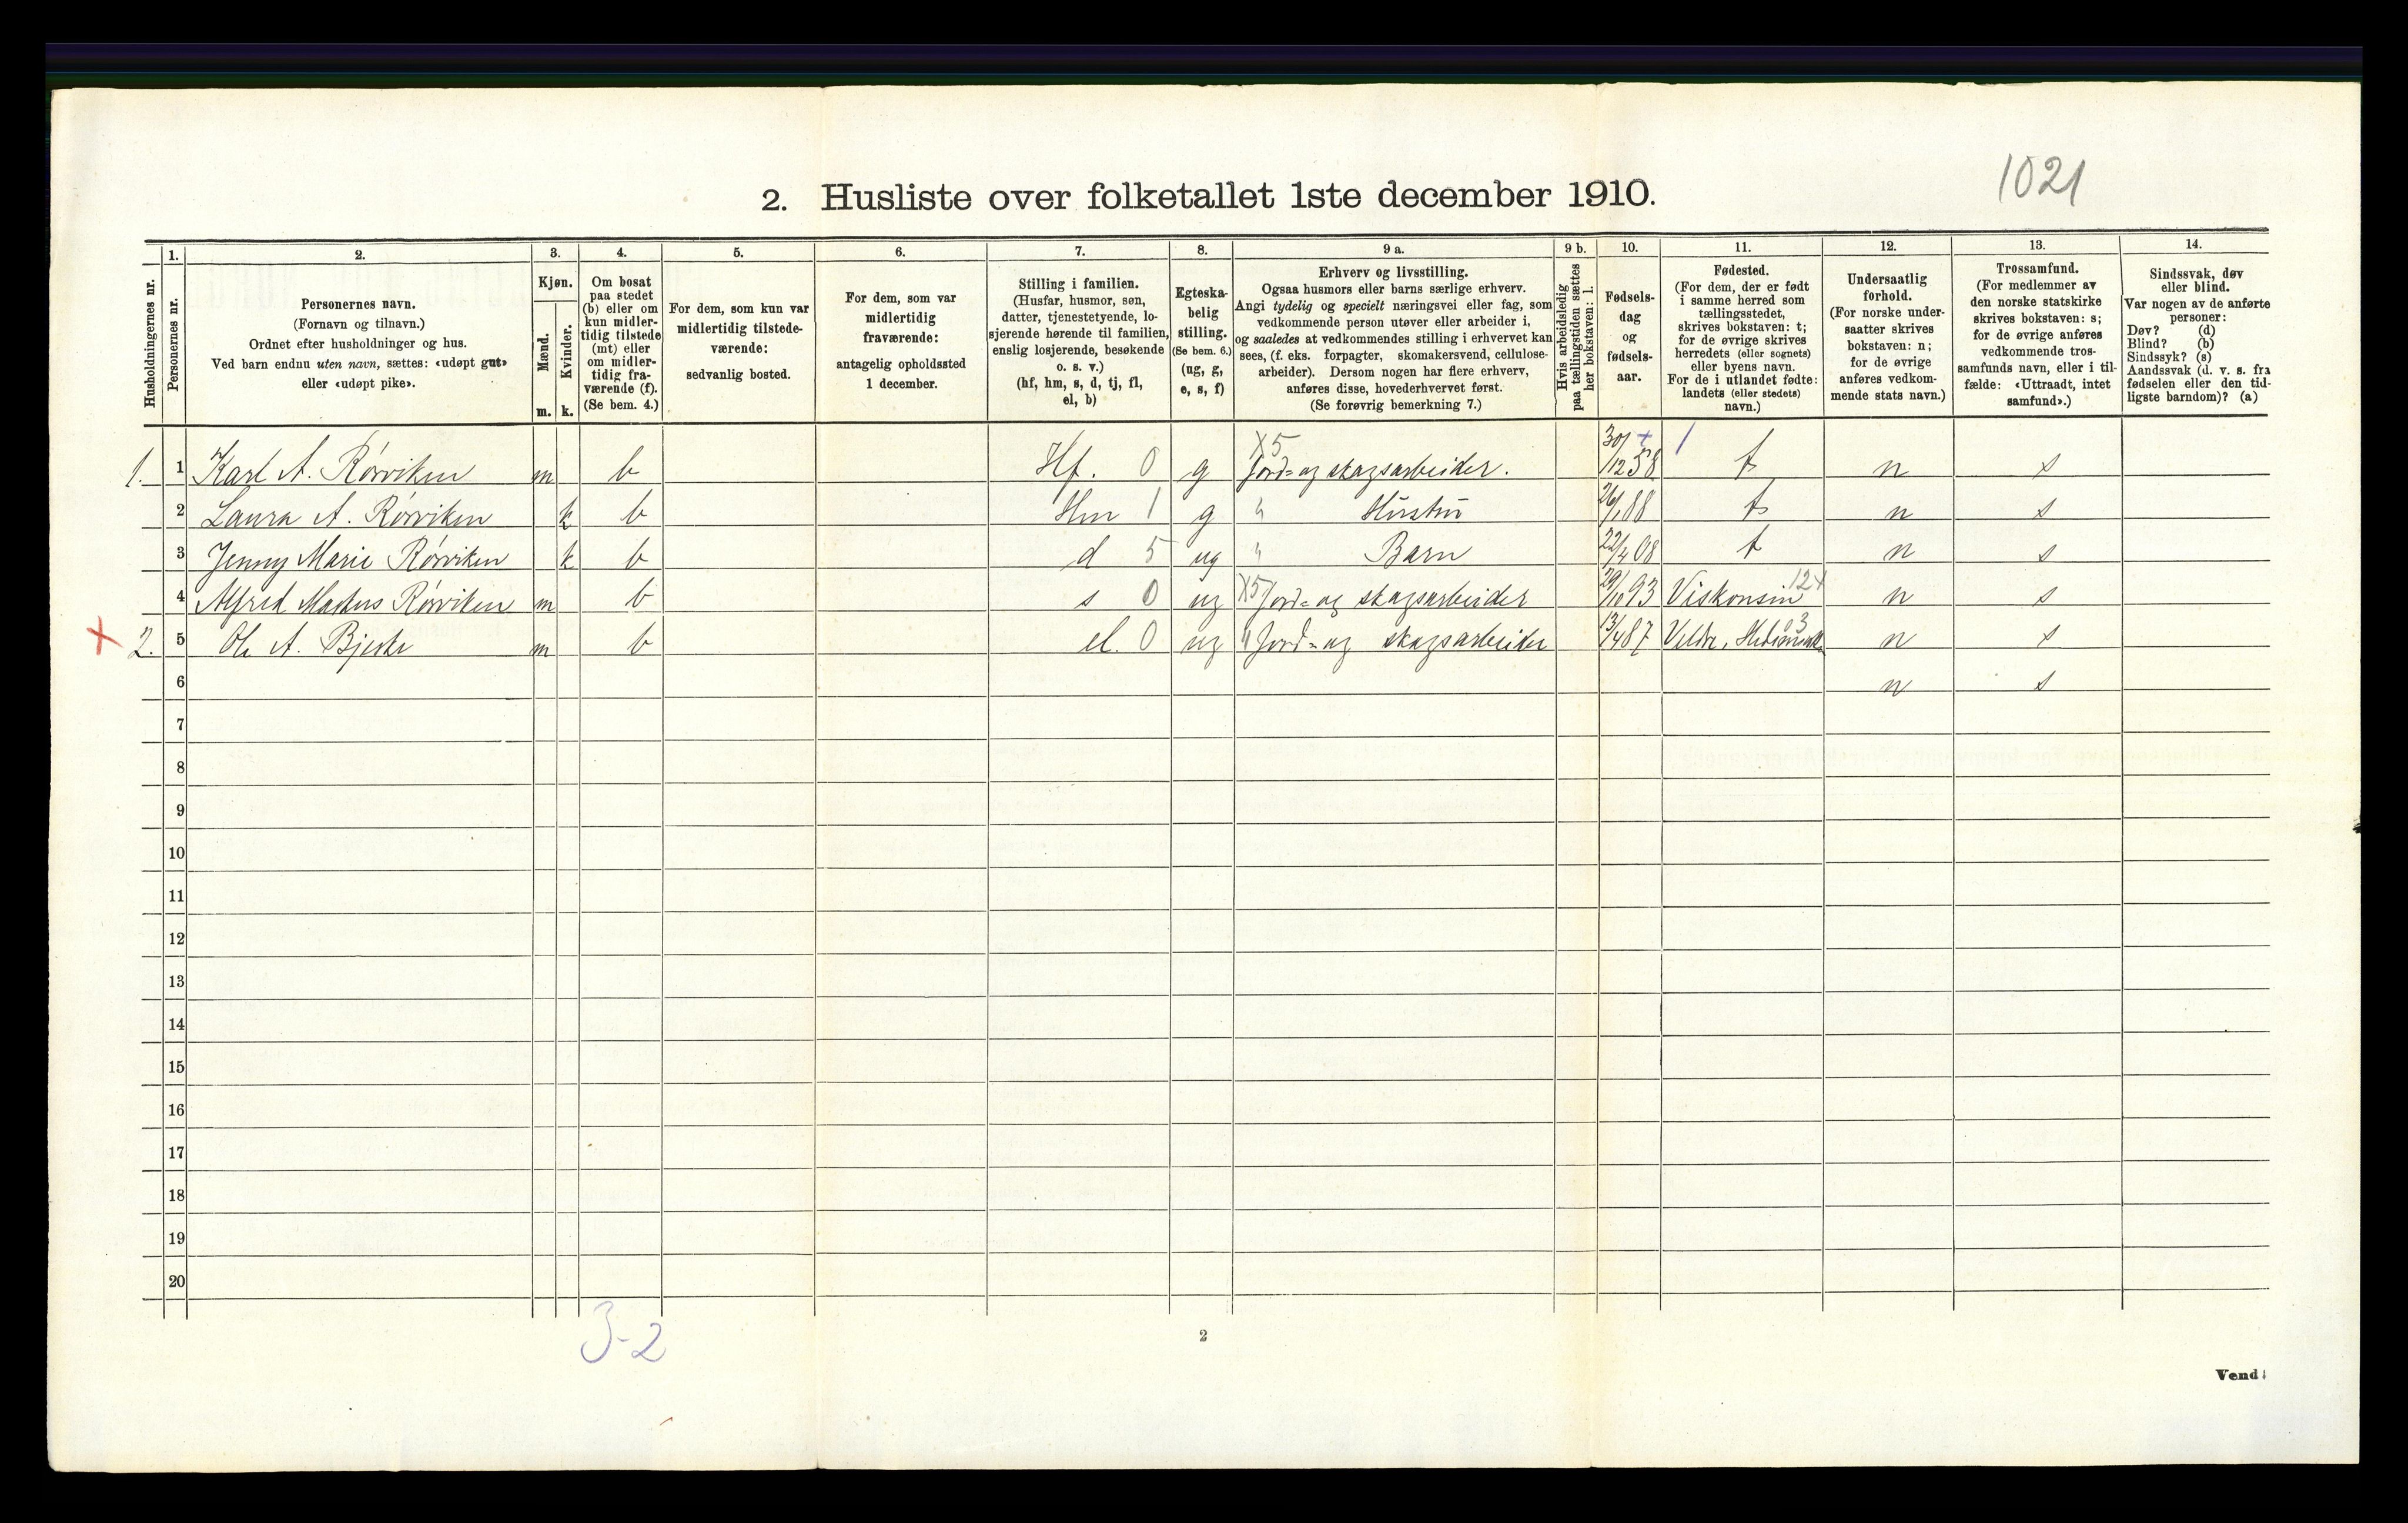 1021
2. Husliste over folketallet 1ste december 1910.
Husholdningernes nr.
1.
Personernes nr.
2.
Personernes navn.
(Fornavn og tilnavn.)
Ordnet efter husholdninger og hus.
Ved barn endnu uten navn, sættes: «udøpt gut»
eller «udøpt pike».
3.
Kjøn.
Mænd.
m.
Kvinder.
k.
4.
Om bosat
paa stedet
(b) eller om
kun midler-
tidig tilstede
(mt) eller
om midler-
tidig fra-
værende (f).
(Se bem. 4.)
5.
For dem, som kun var
midlertidig tilstede-
værende:
sedvanlig bosted.
6.
For dem, som var
midlertidig
fraværende:
antagelig opholdssted
1 december.
7.
Stilling i familien.
(Husfar, husmor, søn,
datter, tjenestetyende, lo-
sjerende hørende til familien,
enslig losjerende, besøkende
o. s. v.)
(hf, hm, s, d, tj, fl,
el, b)
8.
Egteska-
belig
stilling.
(Se bem. 6.)
(ug, g,
e, s, f)
9 a.
Erhverv og livsstilling.
Ogsaa husmors eller barns særlige erhverv.
Angi tydelig og specielt næringsvei eller fag, som
vedkommende person utøver eller arbeider i,
og saaledes at vedkommendes stilling i erhvervet kan
sees, (f. eks. forpagter, skomakersvend, cellulose-
arbeider). Dersom nogen har flere erhverv,
anføres disse, hovederhvervet først.
(Se forøvrig bemerkning 7.)
9 b.
Hvis arbeidsledig
paa tællingstiden sættes
her bokstaven: l.
10.
Fødsels-
dag
og
fødsels-
aar.
11.
Fødested.
(For dem, der er født
i samme herred som
tællingsstedet,
skrives bokstaven: t;
for de øvrige skrives
herredets (eller sognets)
eller byens navn.
For de i utlandet fødte:
landets (eller stedets)
navn.)
12.
Undersaatlig
forhold.
(For norske under-
saatter skrives
bokstaven: n;
for de øvrige
anføres vedkom-
mende stats navn.)
13.
Trossamfund.
(For medlemmer av
den norske statskirke
skrives bokstaven: s;
for de øvrige anføres
vedkommende tros-
samfunds navn, eller i til-
fælde: «Uttraadt, intet
samfund».)
14.
Sindssvak, døv
eller blind.
Var nogen av de anførte
personer:
Døv? (d)
Blind? (b)
Sindssyk? (s)
Aandssvak (d. v. s. fra
fødselen eller den tid-
ligste barndom)? (a)
1. 1 Karl A. Rørviken m b Hf. 0 g X5 Jord= og skogsarbeider. 30/12 58 t n s
2 Laura A. Rørviken k b Hm 1 g " Hustru 26/1 88 t n s
3 Jenny Marie Rørviken k b d 5 ug " Barn 08 t n s
4 Alfred Markus Rørviken m b s 0 ug X5 Jord= og skogsarbeider 29/10 93 Viskonsin 12+ n s
2. 5 Ole A. m b el. 0 ug " Jord= og skogsarbeider 13/4 87 Veldre, Hedemark n s
6 n s
7
8
9
10
11
12
13
14
15
16
17
18
19
20
3-2
2
Vend!